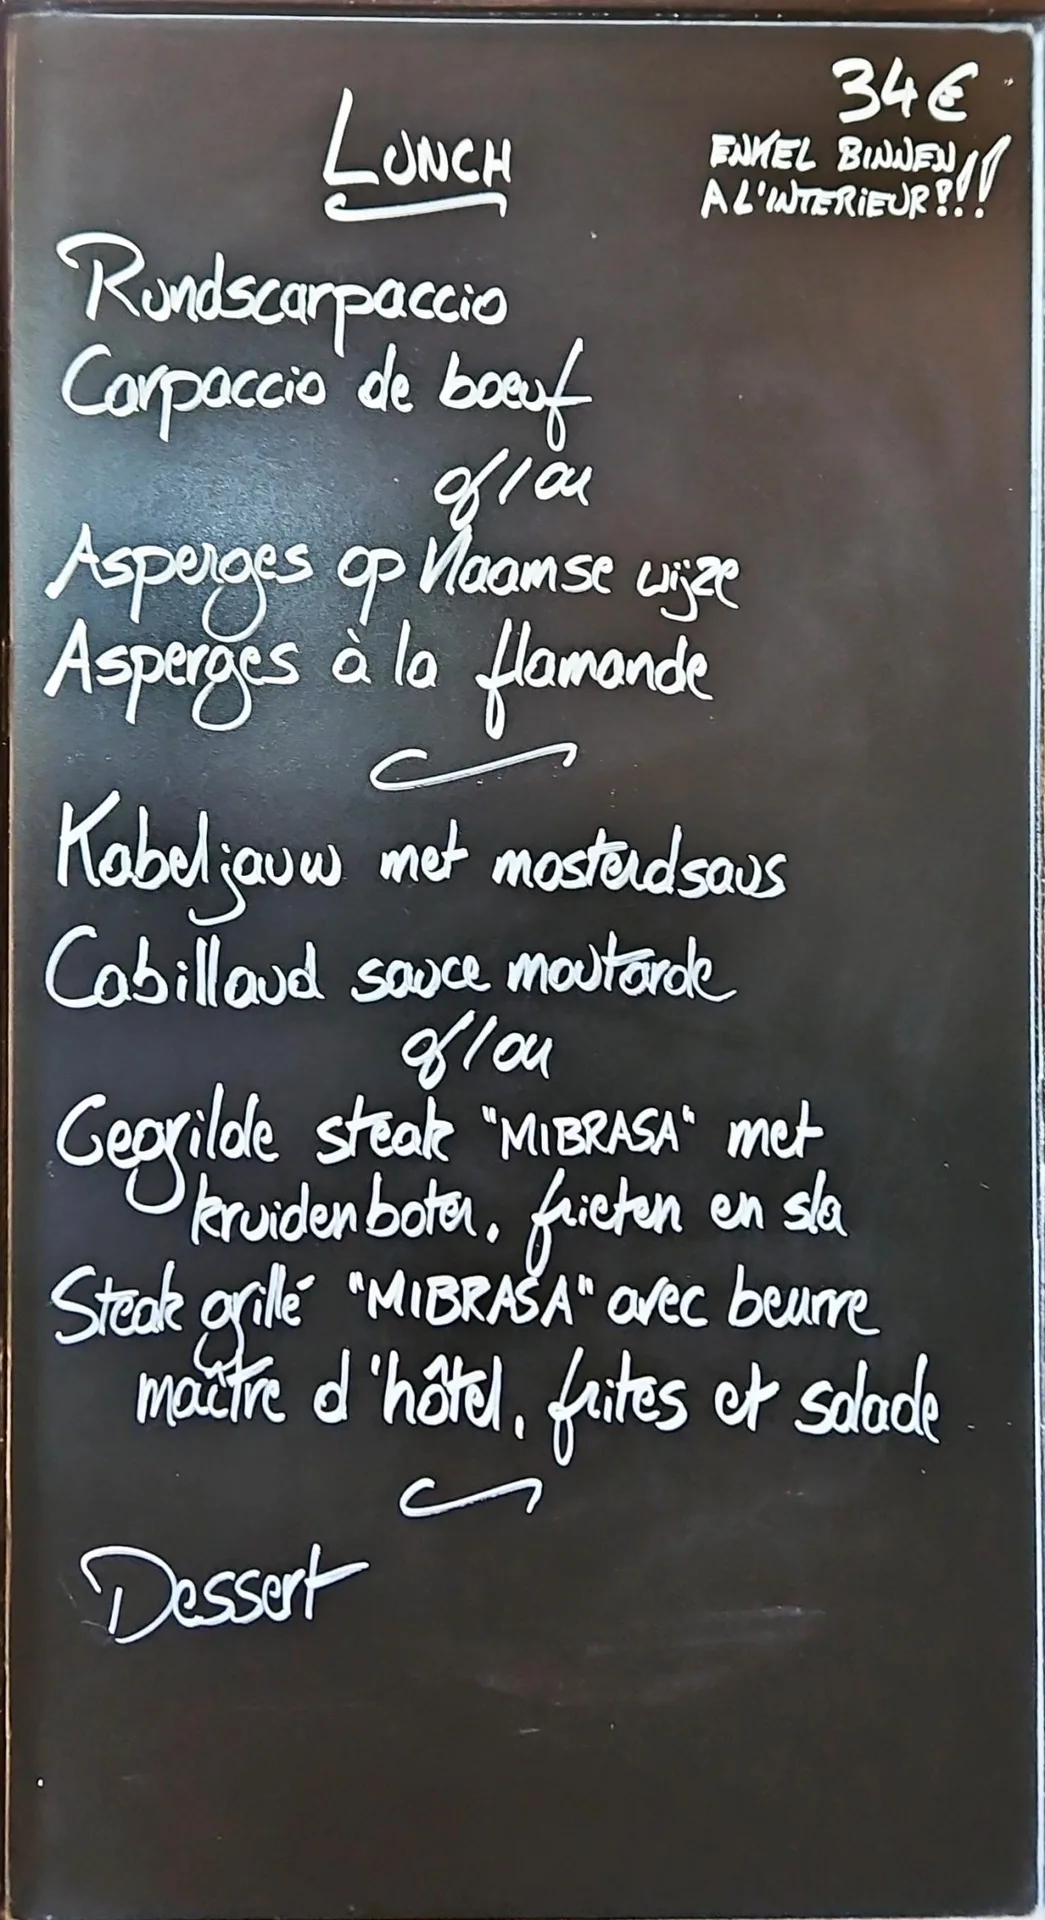 34€
LUNCH
ENKEL BINNEN !!
A L'INTERIEUR !!!
Rundscarpaccio
Carpaccio de boeuf
of/ou
Asperges op Vlaamse wijze
Asperges à la flamande
Kabeljauw met mosterdsaus
Cabillaud sauce moutarde
of/ou
Gegrilde steak "MIBRASA" met
kruidenboter, frieten en sla
Steak grillé "MIBRASA" avec beurre
maître d'hôtel, frites et salade
Dessert